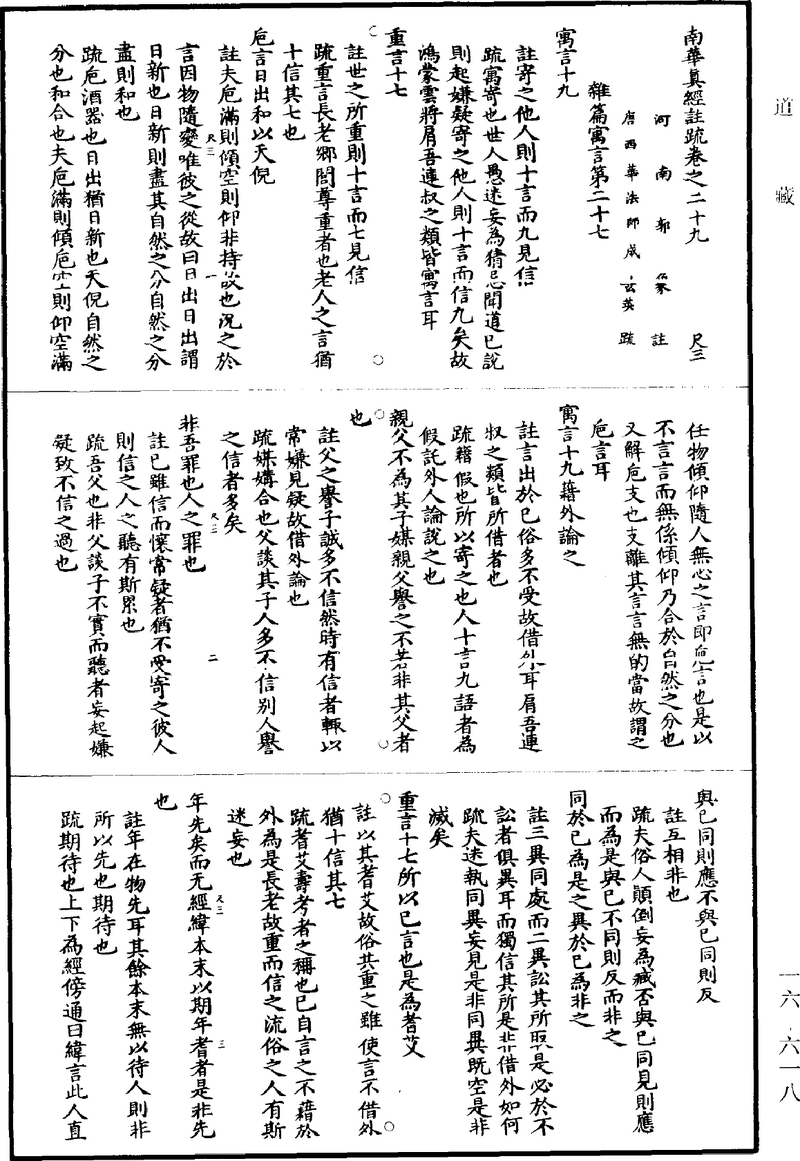 道藏
南華真經註疏卷之二十九 尺三
河南郭象註
唐西華法師成玄英疏
雜篇寓言第二十七
寓言十九
註寄之他人則十言而九見信
疏寓寄也世人愚迷妄為猜忌聞道已說
則起嫌疑寄之他人則十言而信九矣故
鴻蒙雲將肩吾連叔之類皆寓言耳
重言十七
註世之所重則十言而七見信
疏重言長老鄉閭尊重者也老人之言猶
十信其七也
卮言日出和以天倪
註夫卮滿則傾空則仰非持故也況之於
言因物隨變唯彼之從故曰日出日出謂
日新也日新則盡其自然之分自然之分
盡則和也
疏卮酒器也日出猶日新也天倪自然之
分也和合也夫卮滿則傾卮空則仰空滿
尺三 一
任物傾仰隨人無心之言即卮言也是以
不言言而無係傾仰乃合於自然之分也
又解卮支也支離其言言無的當故謂之
卮言耳
寓言十九藉外論之
註言出於己俗多不受故借外耳肩吾連
叔之類皆所借者也
疏藉假也所以寄之也人十言九語者為
假託外人論說之也
親父不為其子媒親父譽之不若非其父者
也
註父之譽子誠多不信然時有信者輒以
常嫌見疑故借外論也
疏媒媾合也父談其子人多不信別人譽
之信者多矣
非吾罪也人之罪也
註已雖信而懷常疑者猶不受寄之彼人
則信之人之聽有斯累也
疏吾父也非父談子不實而聽者妄起嫌
疑致不信之過也
尺三 二
與己同則應不與己同則反
註互相非也
疏夫俗人顛倒妄為臧否與己同見則應
而為是與己不同則反而非之
同於己為是之異於己為非之
註三異同處而二異訟其所取是必於不
訟者俱異耳而獨信其所是非借外如何
疏夫迷執同異妄見是非同異既空是非
滅矣
重言十七所以已言也是為耆艾
註以其耆艾故俗共重之雖使言不借外
猶十信其七
疏耆艾壽考者之稱也已自言之不藉於
外為是長老故重而信之流俗之人有斯
迷妄也
年先矣而无經緯本末以期年耆者是非先
也
註年在物先耳其餘本末無以待人則非
所以先也期待也
疏期待也上下為經傍通曰緯言此人直
尺三 三
一六·六一八